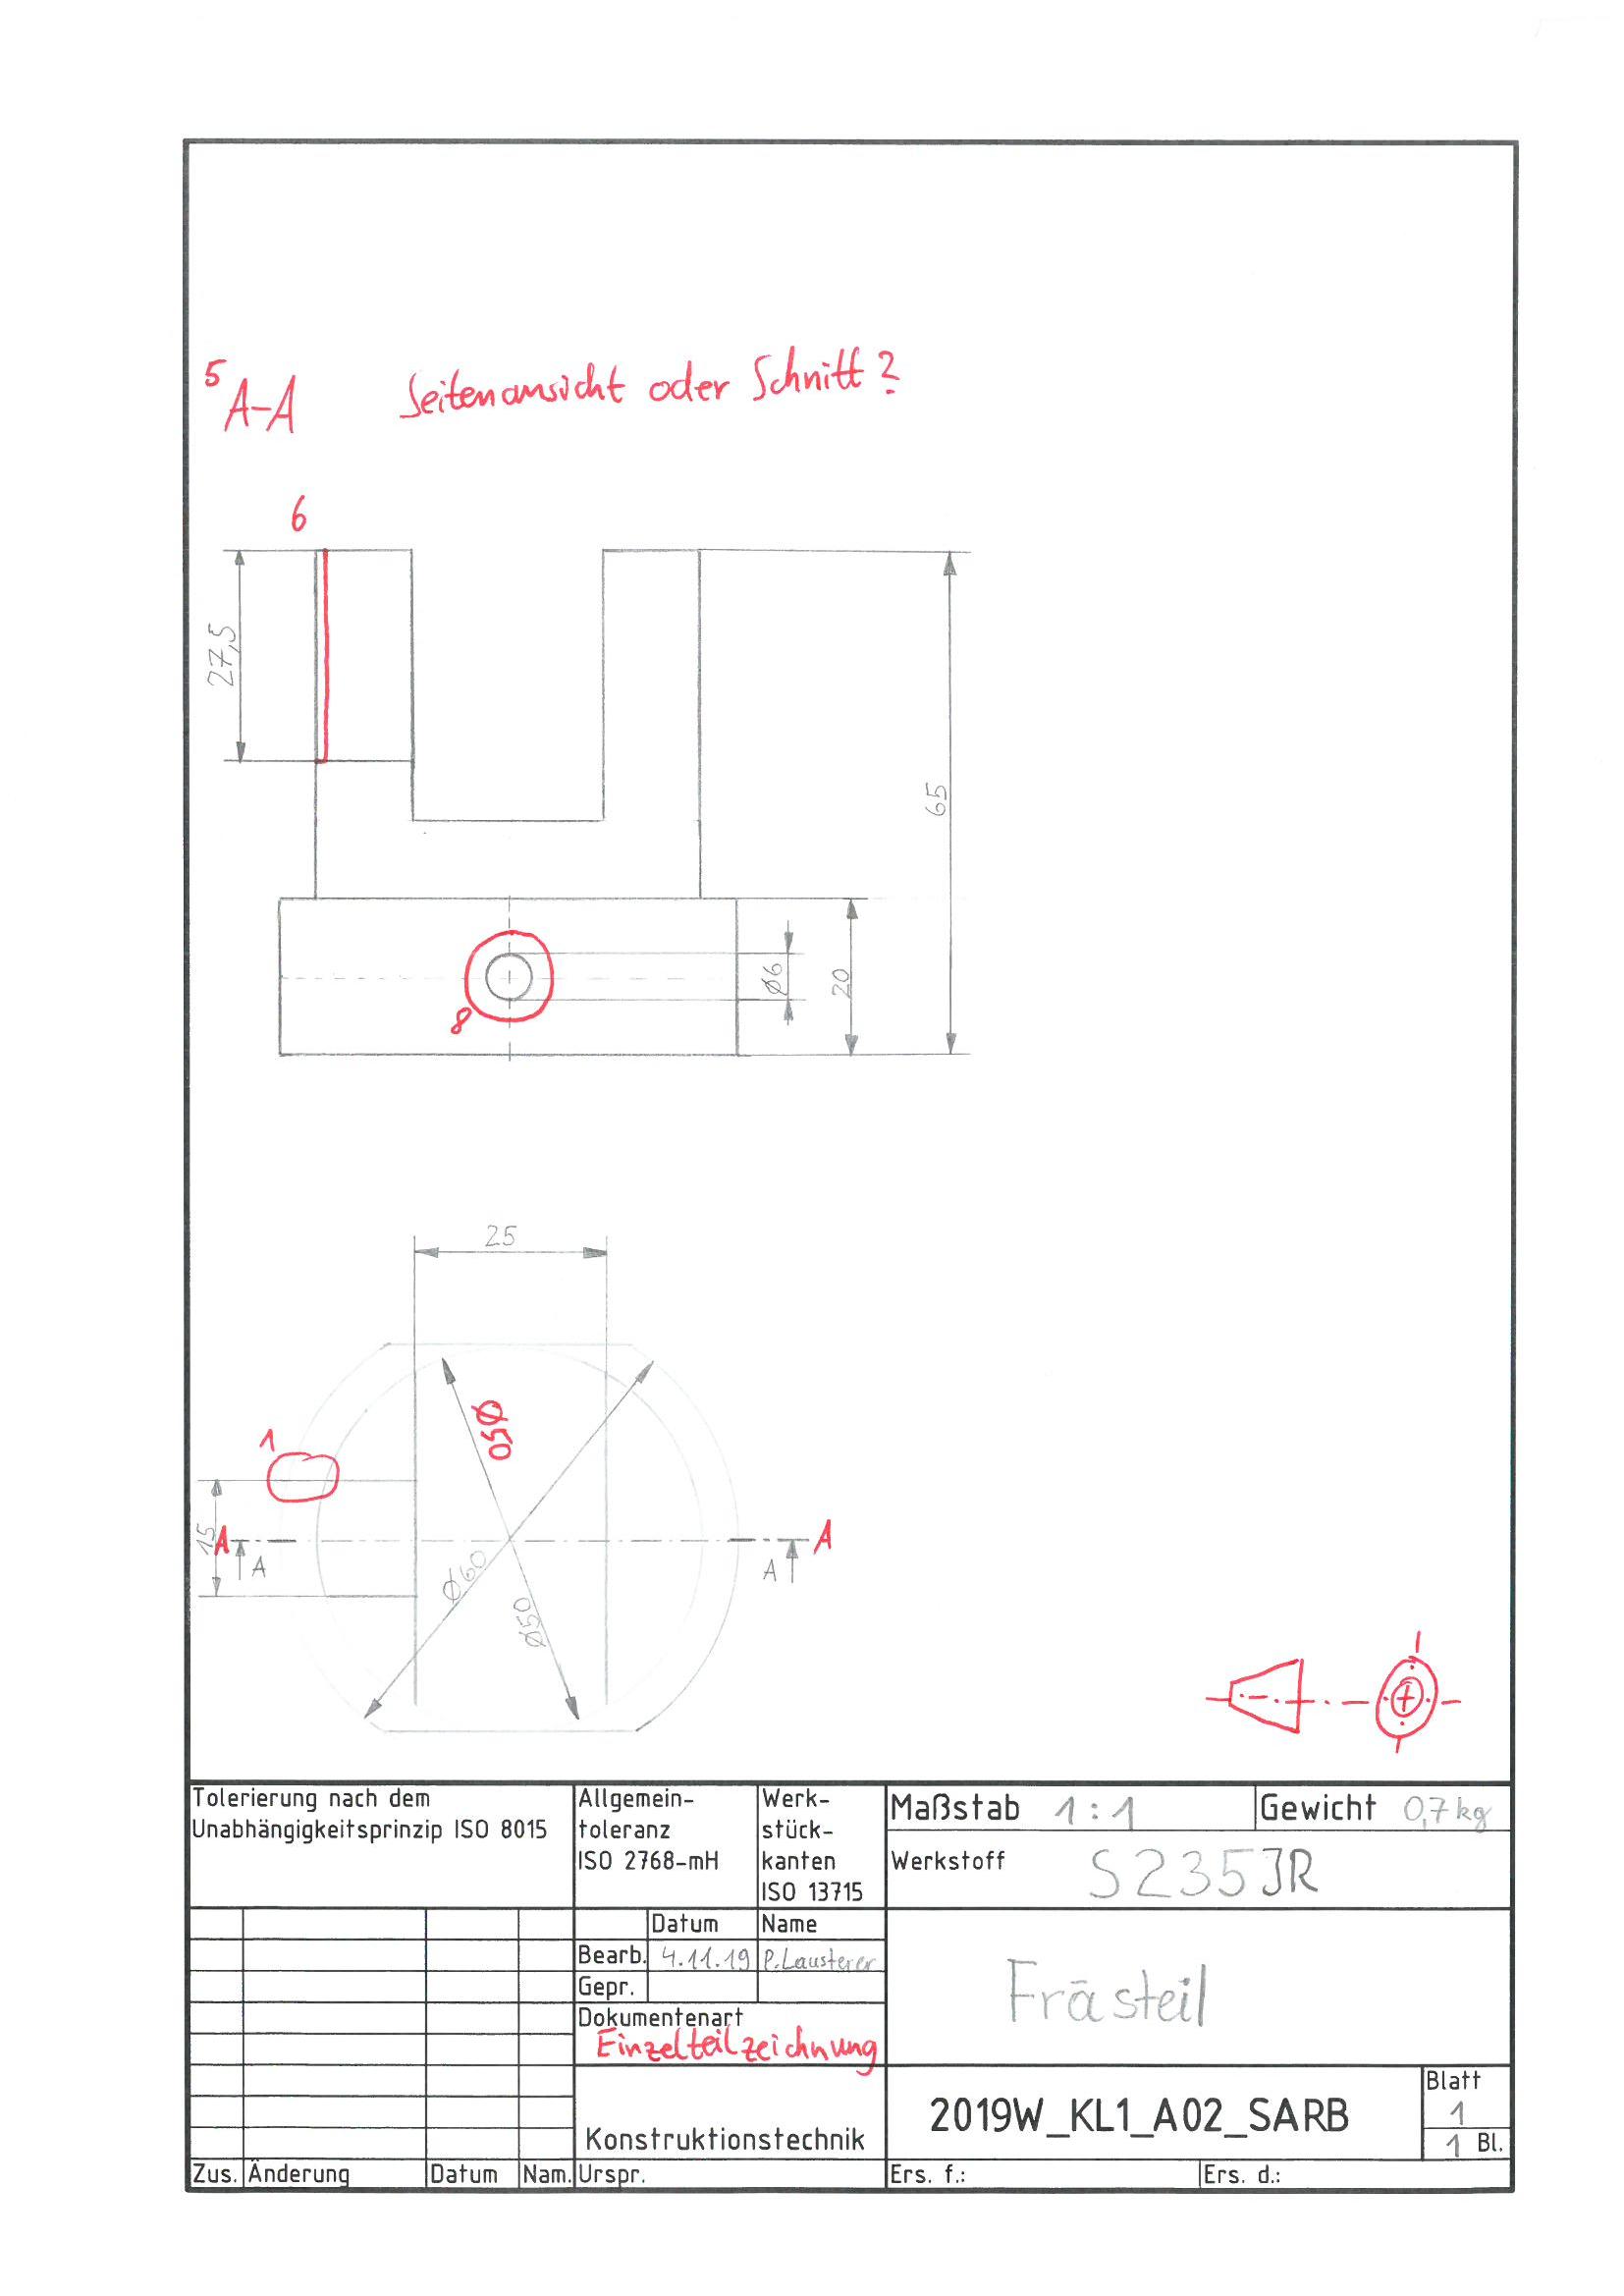 5
A-A Seitenansicht oder Schnitt?
6
27,5
65
ø6
20
8
25
ø50
1
15
A A
A A
ø60
ø50
Tolerierung nach dem
Unabhängigkeitsprinzip ISO 8015
Allgemein-
toleranz
ISO 2768-mH
Werk-
stück-
kanten
ISO 13715
Maßstab 1:1
Gewicht 0,7kg
Werkstoff S235JR
Datum Name
Bearb. 4.11.19 P.Lausterer
Gepr.
Dokumentenart
Einzelteilzeichnung
Frästeil
Konstruktionstechnik
2019W_KL1_A02_SARB
Blatt
1
1 Bl.
Zus. Änderung Datum Nam. Urspr. Ers. f.: Ers. d.: